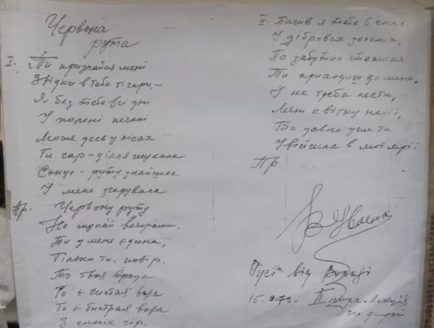 Червона
рута
I. Ти признайся мені
Звідки в тебе ті чари,—
Я без тебе всі дні
У полоні печалі
Може десь у лісах
Ти чар-зілля шукала
Сонце-руту знайшла
І мене зчарувала
Пр. Червону руту
Не шукай вечорами.
Ти у мене єдина,
Тільки ти, повір.
Бо твоя врода
То є чистая вода
То є бистрая вода
З синіх гір.
II. Бачив я тебе в снах,
У дібровах зелених,
По забутих стежках
Ти приходиш до мене.
І не треба нести,
Мені квітку надії,
Бо давно уже ти
Увійшла в мої мрії.
Пр...
від
15.